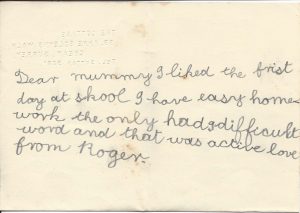 Dear mummy I liked the frist
day at skool I have easy home
work the only had difficult
word and that was active love
from Roger.